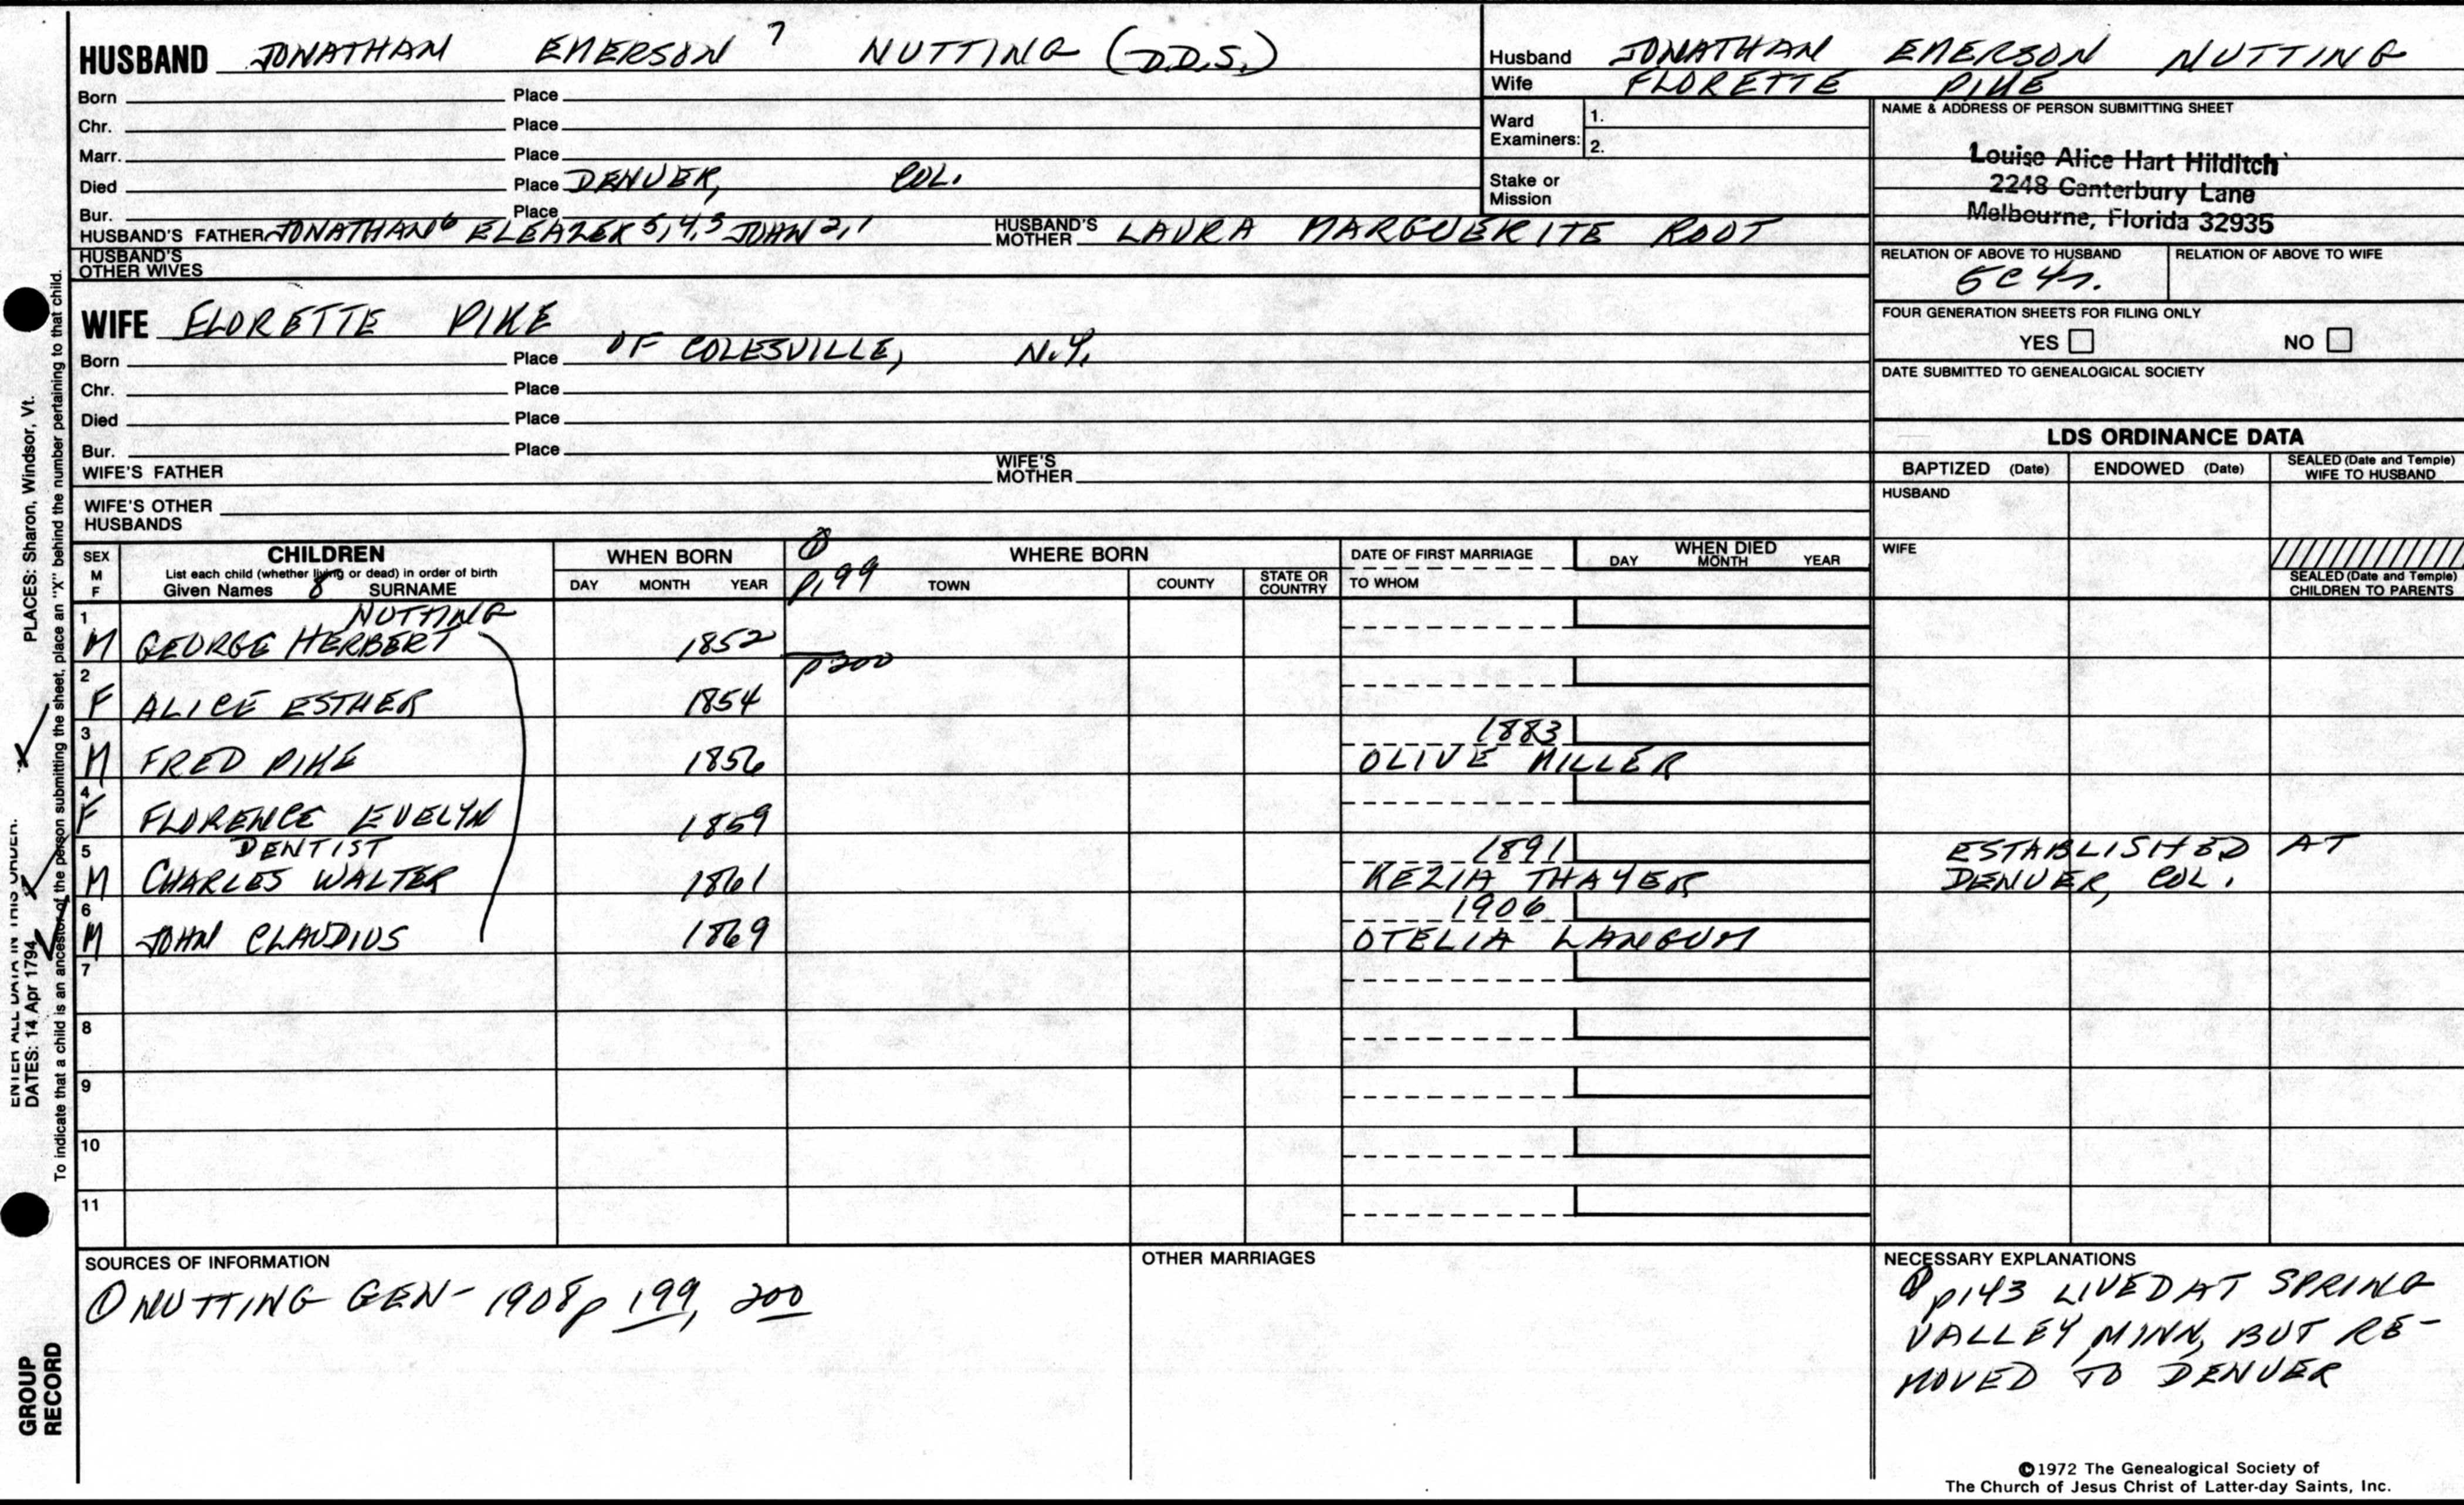 HUSBAND JONATHAN EMERSON 7 NUTTING (D.D.S.)
Born Place
Chr. Place
Marr. Place
Died Place DENVER, COL.
Bur. Place
HUSBAND'S FATHER JONATHAN 6 ELEAZER 5,4,3 JOHN 2,1 HUSBAND'S MOTHER LAURA MARGUERITE ROOT
HUSBAND'S OTHER WIVES
Husband JONATHAN EMERSON NUTTING
Wife FLORETTE PIKE
Ward Examiners: 1.
2.
Stake or Mission
NAME & ADDRESS OF PERSON SUBMITTING SHEET
Louise Alice Hart Hilditch
2248 Canterbury Lane
Melbourne, Florida 32935
RELATION OF ABOVE TO HUSBAND RELATION OF ABOVE TO WIFE
5C4r.
FOUR GENERATION SHEETS FOR FILING ONLY
YES NO
DATE SUBMITTED TO GENEALOGICAL SOCIETY
WIFE FLORETTE PIKE
Born Place OF COLESVILLE, N.Y.
Chr. Place
Died Place
Bur. Place
WIFE'S FATHER WIFE'S MOTHER
WIFE'S OTHER HUSBANDS
LDS ORDINANCE DATA
BAPTIZED (Date) ENDOWED (Date) SEALED (Date and Temple) WIFE TO HUSBAND
HUSBAND
WIFE
SEALED (Date and Temple) CHILDREN TO PARENTS
SEX M F
CHILDREN
List each child (whether living or dead) in order of birth
Given Names 8 SURNAME
WHEN BORN
DAY MONTH YEAR
p199
WHERE BORN
TOWN COUNTY STATE OR COUNTRY
DATE OF FIRST MARRIAGE
TO WHOM
WHEN DIED
DAY MONTH YEAR
NUTTING
1 M GEORGE HERBERT 1852
p200
2 F ALICE ESTHER 1854
1883
3 M FRED PIKE 1856 OLIVE MILLER
4 F FLORENCE EVELYN 1859
DENTIST 1891 ESTABLISHED AT
5 M CHARLES WALTER 1861 KEZIA THAYER DENVER, COL.
1906
6 M JOHN CLAUDIUS 1869 OTELIA LANGUM
7
8
9
10
11
SOURCES OF INFORMATION
① NUTTING GEN- 1908 p 199, 200
OTHER MARRIAGES
NECESSARY EXPLANATIONS
① p143 LIVED AT SPRING
VALLEY, MINN, BUT RE-
MOVED TO DENVER
©1972 The Genealogical Society of
The Church of Jesus Christ of Latter-day Saints, Inc.
PLACES: Sharon, Windsor, Vt.
ENTER ALL DATA IN THIS ORDER:
DATES: 14 Apr 1794
To indicate that a child is an ancestor of the person submitting the sheet, place an "X" behind the number pertaining to that child.
GROUP
RECORD